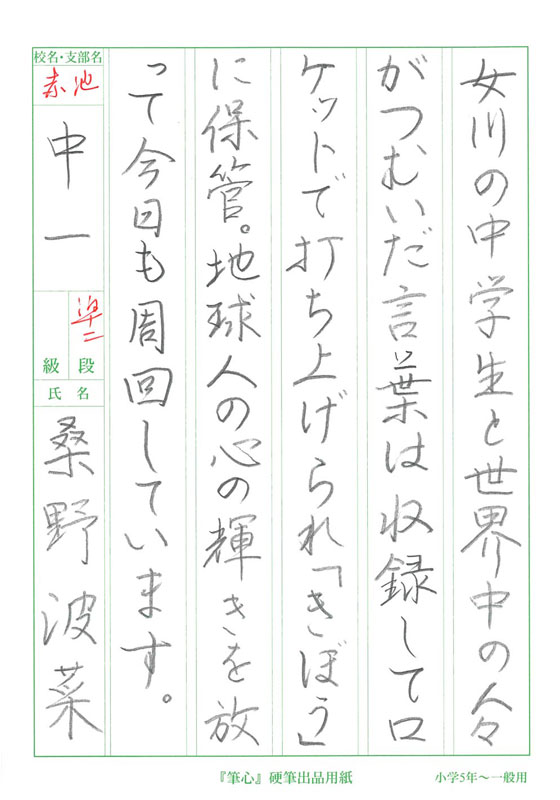 女川の中学生と世界中の人々
がつむいだ言葉は収録してロ
ケットで打ち上げられ「きぼう」
に保管。地球人の心の輝きを放
って今日も周回しています。
校名・支部名
赤池
中一
準二
級 段
氏名
桑野波菜
『筆心』硬筆出品用紙
小学5年〜一般用